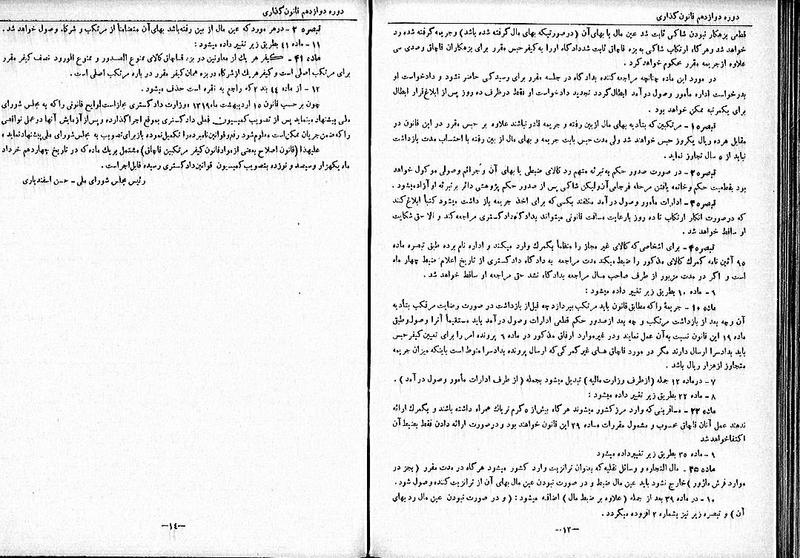 دوره دوازدهم قانون گذاری
قطعی بزهکار نبودن شاکی ثابت شد عین مال یا بهای آن (درصورتیکه بهای مال گرفته شده باشد) وجریمه گرفته شده رد
خواهد شد وهرگاه ارتکاب شاکی به بزه قاچاق ثابت شد دادگاه اورا به کیفر حبس مقرر برای بزهکاران قاچاق وصدی می
علاوه از جریمه مقرر محکوم خواهد کرد.
در مورد این ماده چنانچه مراجعه کننده بدادگاه در جلسه مقرر برای رسیدگی حاضر نشود و دادخواست او
بدرخواست اداره مأمور وصول درآمد ابطال گردد تجدید دادخواست او فقط درظرف ده روز پس از ابلاغ قرار ابطال
برای یکمرتبه ممکن خواهد بود.
تبصره ۱ - مرتکبین که بتأدیه بهای مال ازبین رفته و جریمه قادر نباشند علاوه بر حبس مقرر در این قانون در
مقابل هرده ریال یکروز حبس خواهند شد ولی مدت حبس بابت جریمه و بهای مال از بین رفته با احتساب مدت بازداشت
نباید از ۵ سال تجاوز نماید.
تبصره ۲ - در صورت صدور حکم به تبرئه متهم رد کالای ضبطی یا بهای آن و جرائم وصولی موکول خواهد
بود بقطعیت حکم وخاتمه یافتن مرحله فرجامی آن ولیکن شاکی پس از صدور حکم پژوهشی دائر برتبرئه او آزاد میشود.
تبصره ۳ - ادارات مأمور وصول درآمد مکلفند بکسی که برای اخذ جریمه باز داشت میشود کتباً ابلاغ کند
که درصورت انکار ارتکاب تا ده روز بارعایت مسافت قانونی میتواند بدادگاه دادگستری مراجعه کند و الا حق شکایت
او ساقط خواهد شد.
تبصره ۴ - برای اشخاصی که کالای غیر مجاز را منظماً بگمرک وارد میکنند و اداره نام برده طبق تبصره ماده
۹۵ آئین نامه گمرک کالای مذکور را ضبط میکند مدت مراجعه به دادگاه دادگستری از تاریخ اعلام ضبط چهار ماه
است و اگر در مدت مزبور از طرف صاحب مال مراجعه بدادگاه نشد حق مراجعه او ساقط خواهد شد.
۶ - ماده ۱۰ بطریق زیر تغییر داده میشود:
ماده ۱۰ - جریمۀ را که مطابق قانون باید مرتکب بپردازد چه قبل از بازداشت در صورت رضایت مرتکب بتأدیه
آن و چه بعد از بازداشت مرتکب و چه بعد از صدور حکم قطعی ادارات وصول درآمد باید مستقیماً آنرا وصول و طبق
ماده ۱۹ این قانون نسبت به آن عمل نمایند ودر غیر موارد ارفاق مذکور در ماده ۶ پرونده امر را برای تعیین کیفر حبس
باید بدادسرا ارسال دارند مگر در مورد قاچاق های غیر گمرکی که ارسال پرونده بدادسرا منوط است باینکه میزان جریمه
متجاوز از هزار ریال باشد.
۷ - در ماده ۱۲ جمله (از طرف وزارت مالیه) تبدیل میشود بجمله (از طرف ادارات مأمور وصول درآمد).
۸ - ماده ۲۲ بطریق زیر تغییر داده میشود:
ماده ۲۲ - مسافرینی که وارد مرز کشور میشوند هرگاه بیش از ۵ گرم تریاک همراه داشته باشند و بگمرک ارائه
ندهند عمل آنان قاچاق محسوب و مشمول مقررات ماده ۲۹ این قانون خواهند بود و در صورت ارائه دادن فقط بضبط آن
اکتفا خواهد شد
۹ - ماده ۳۵ بطریق زیر تغییر داده میشود
ماده ۳۵ - مال التجاره و وسائل نقلیه که بعنوان ترانزیت وارد کشور میشود هرگاه در مدت مقرر (بجز در
موارد فرس ماژور) خارج نشود باید عین مال ضبط و در صورت نبودن عین مال بهای آن از ترانزیت کننده وصول شود.
۱۰ - در ماده ۳۹ بعد از جمله (علاوه بر ضبط مال) اضافه میشود: (و در صورت نبودن عین مال رد بهای
آن) و تبصره زیر نیز بشماره ۲ افزوده میگردد.
—۱۳—
دوره دوازدهم قانون گذاری
تبصره ۲ - در هر مورد که عین مال از بین رفته باشد بهای آن متضامناً از مرتکب و شرکاء وصول خواهد شد.
۱۱ - ماده ۴۱ بطریق زیر تغییر داده میشود:
ماده ۴۱ - کیفر هر یک از معاونین در بزه قاچاق کالای ممنوع الصدور و ممنوع الورود نصف کیفر مقرر
برای مرتکب اصلی است و کیفر هر یک از شرکاء در بزه همان کیفر مقرر در باره مرتکب اصلی است.
۱۲ - از ماده ۴۴ بند ۲ که راجع به نقره است حذف میشود.
چون بر حسب قانون ۱۵ اردیبهشت ماه ۱۳۱۹ «وزارت دادگستری مجاز است لوایح قانونی را که به مجلس شورای
ملی پیشنهاد مینماید پس از تصویب کمیسیون فعلی دادگستری بموقع اجرا گذارده و پس از آزمایش آنها در عمل نواقصی
را که ضمن جریان ممکن است معلوم شود رفع و قوانین نامبرده را تکمیل نموده باز برای تصویب به مجلس شورای ملی پیشنهاد نماید»
علیهذا (قانون اصلاح بعضی از مواد قانون کیفر مرتکبین قاچاق) مشتمل بر یک ماده که در تاریخ چهاردهم خرداد
ماه یکهزار و سیصد و نوزده بتصویب کمیسیون قوانین دادگستری رسیده قابل اجرا است.
رئیس مجلس شورای ملی - حسن اسفندیاری
—۱۴—